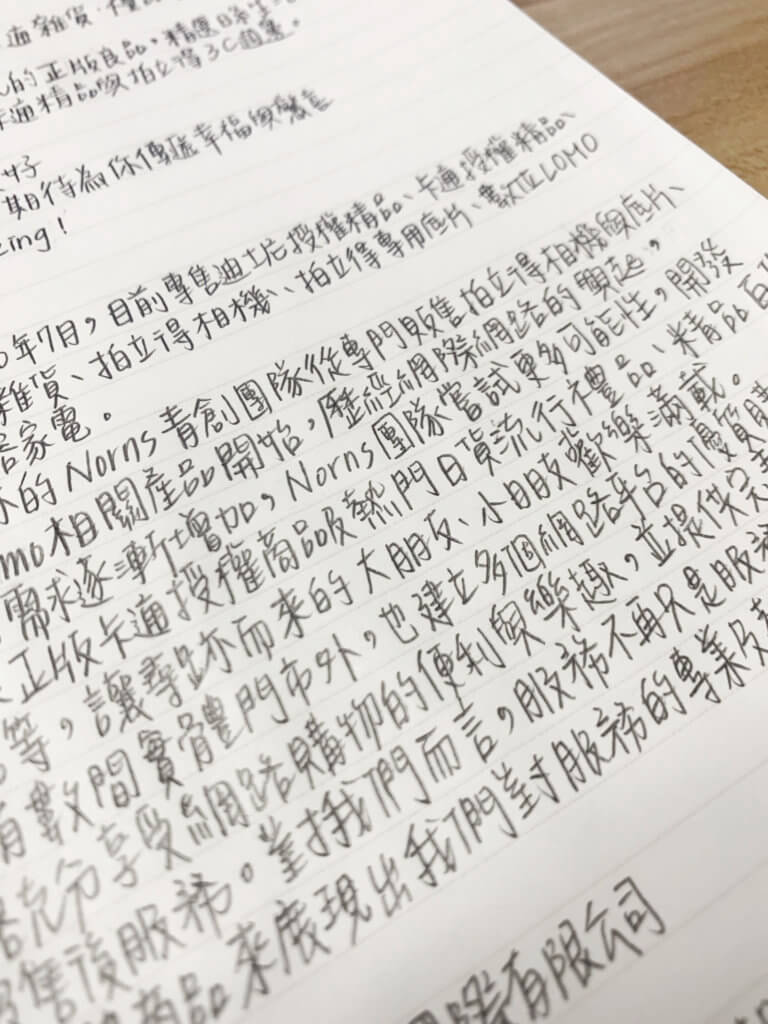 通雜貨、優
的正版良品,精選日系生
卡通精品與拍立得3C週邊。
好
期待為你傳遞幸福與驚喜
zing!
年7月,目前專售迪士尼授權精品、卡通授權精品、
雜貨、拍立得相機、拍立得專用底片、數位LOMO
家電。
的Norns青創團隊從專門販售拍立得相機與底片、
mo相關產品開始,歷經網際網路的興起,
需求逐漸增加,Norns團隊嘗試更多可能性,開發
正版卡通授權商品及熱門日貨流行禮品、精品百貨
等,讓尋跡而來的大朋友、小朋友歡樂滿載。
有數間實體門市外,也建立多個網路平台的優質購
充分享受網路購物的便利與樂趣,並提供完
售後服務。對我們而言,服務不再只是服務
商品來展現出我們對服務的專業及
國際有限公司